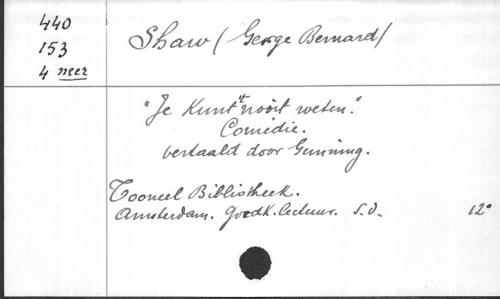 440
153
4 neer
Shaw (George Bernard)
"Je Kunt 't nooit weten."
Comedie.
vertaald door Gunning.
Tooneel Bibliotheek.
Amsterdam. Goedk. lectuur. S.D. 12°